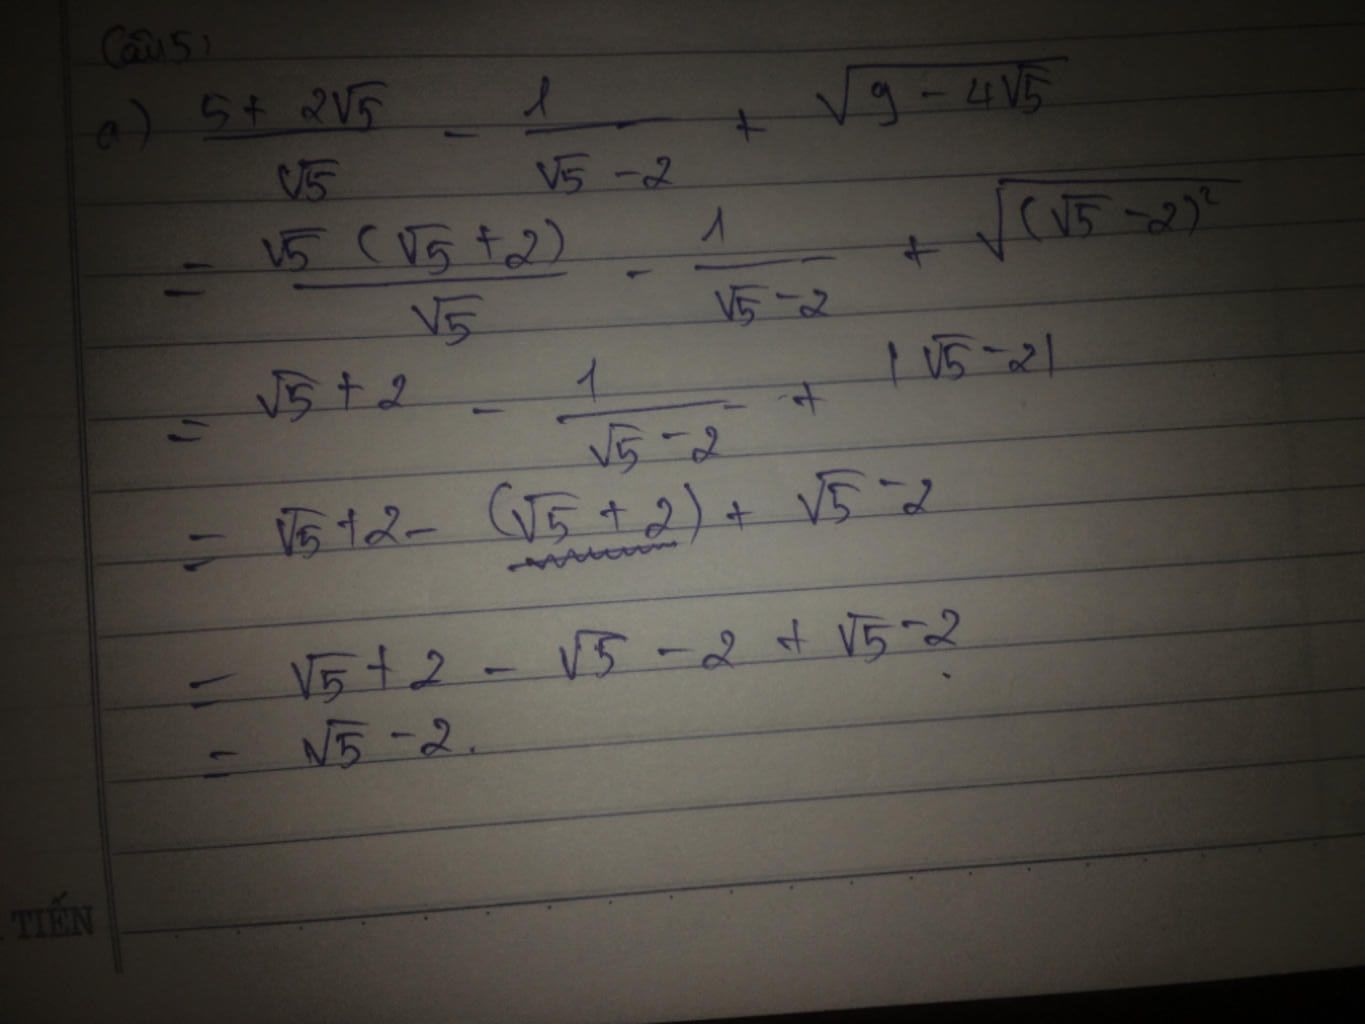 Câu 5:
a) \frac{5 + 2\sqrt{5}}{\sqrt{5}} - \frac{1}{\sqrt{5} - 2} + \sqrt{9 - 4\sqrt{5}}
= \frac{\sqrt{5} (\sqrt{5} + 2)}{\sqrt{5}} - \frac{1}{\sqrt{5} - 2} + \sqrt{(\sqrt{5} - 2)^2}
= \sqrt{5} + 2 - \frac{1}{\sqrt{5} - 2} + |\sqrt{5} - 2|
= \sqrt{5} + 2 - (\sqrt{5} + 2) + \sqrt{5} - 2
= \sqrt{5} + 2 - \sqrt{5} - 2 + \sqrt{5} - 2
= \sqrt{5} - 2.
TIẾN